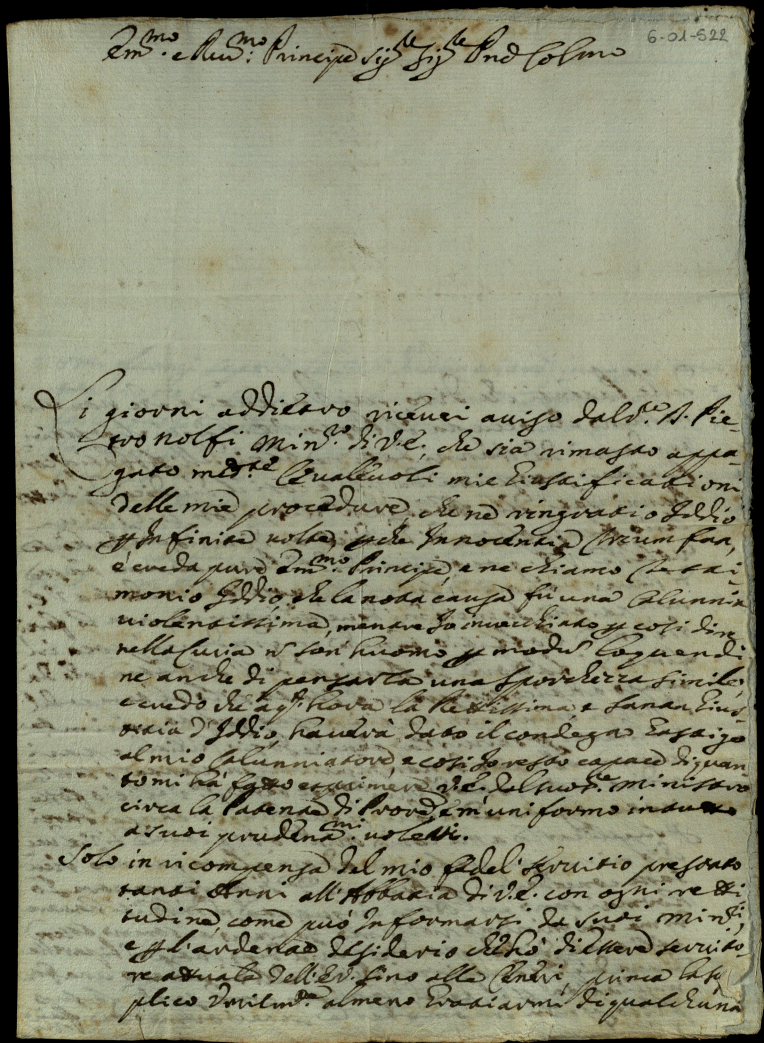 6-01-522
Em.mo e Rev.mo Principe Sig.re Sig.re Pnē Colmo
Li giorni addietro ricevei aviso dal S.re D. Pie-
tro Nolfi Min.ro di V.E., che sia rimasto appa-
gato med.te le valevoli mie giustificationi
delle mie procedure, che ne ringratio Iddio
p infinite volte, p che Innocentia Circumfan,
e creda pure Em.mo Principe, e ne chiamo testi-
monio Iddio, che la nota causa fù una Calunnia
violentissima, mentre Io invecchiato p così dire
nella Curia nō son huomo p modū loquendi
ne anche di pensarla una sporchezza simile
e credo che à q.st'hora la Rettissima e Santa Gius-
titia d'Iddio, haverà dato il condegno gastigo
al mio Calunniatore, e così Io resto capace di quan-
to mi hà fatto esprimere V.E. dal suo S.re Ministro
circa la Patente di Prov.re, e m'uniformo in tutto
a suoi prudent.mi voleri.
Solo in ricompensa del mio fedel servitio prestato
tanti Anni all'Abbatia di V.E. con ogni retti
tudine, come può Informarsi da suoi Min.ri,
e p l'ardente desiderio che hò di essere servito-
re attuale dell'E.V. sino alle Ceneri, la sup
plico umilm.te almeno gratiarmi di qualch'una